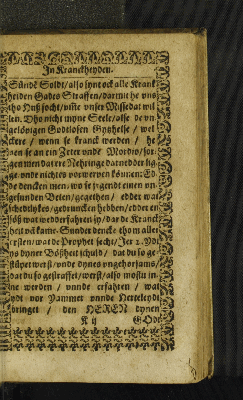 In Kranckheyden.
Sünde Soldt/ also synt ock alle Kranck
heiden Gades Straffen/ darmit he vns
tho Huß söcht/ vmme vnser Missedat wil
len. Dho nicht myne Seele/ alse de vn
gelövigen Godtlosen Gythelse / wel
ckere / wenn se kranck werden / he
uen se an ein Zeter vnde Mordio/ sor
gen wen dat ere Nehringe dat nedder ligge
vnde nichtes vorwerven können: Ed
de dencken men/ wo se yrgendt einen un
gesunden Beten/ gegethen/ edder wat
schedtlykes/ gedruncken hebben/ edder en
süß wat wedderfahren sy/ dar de Kranck
heit vā kame. Sunder dencke thom aller
ersten/ wat de Prophet secht/ Jer 2. Ydt
ys dyner Bößheit schuldt/ dat du so ge
stüpet werst/ vnde dynes vngehorsams/
dat du so gestraffet/ werst/ also mostu in
ne werden / vnnde erfahren / wat
ydt vor Jammer vnnde Herteleydt
bringet / den HEREN dynen
K ij GOdt